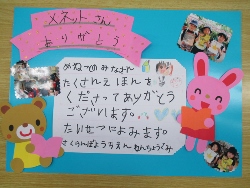 メネットさん
ありがとう
めねっとのみなさん
たくさんえほんを
くださってありがとう
ございます。
たいせつによみます。
さくらんぼようちえん ねんちょうぐみ